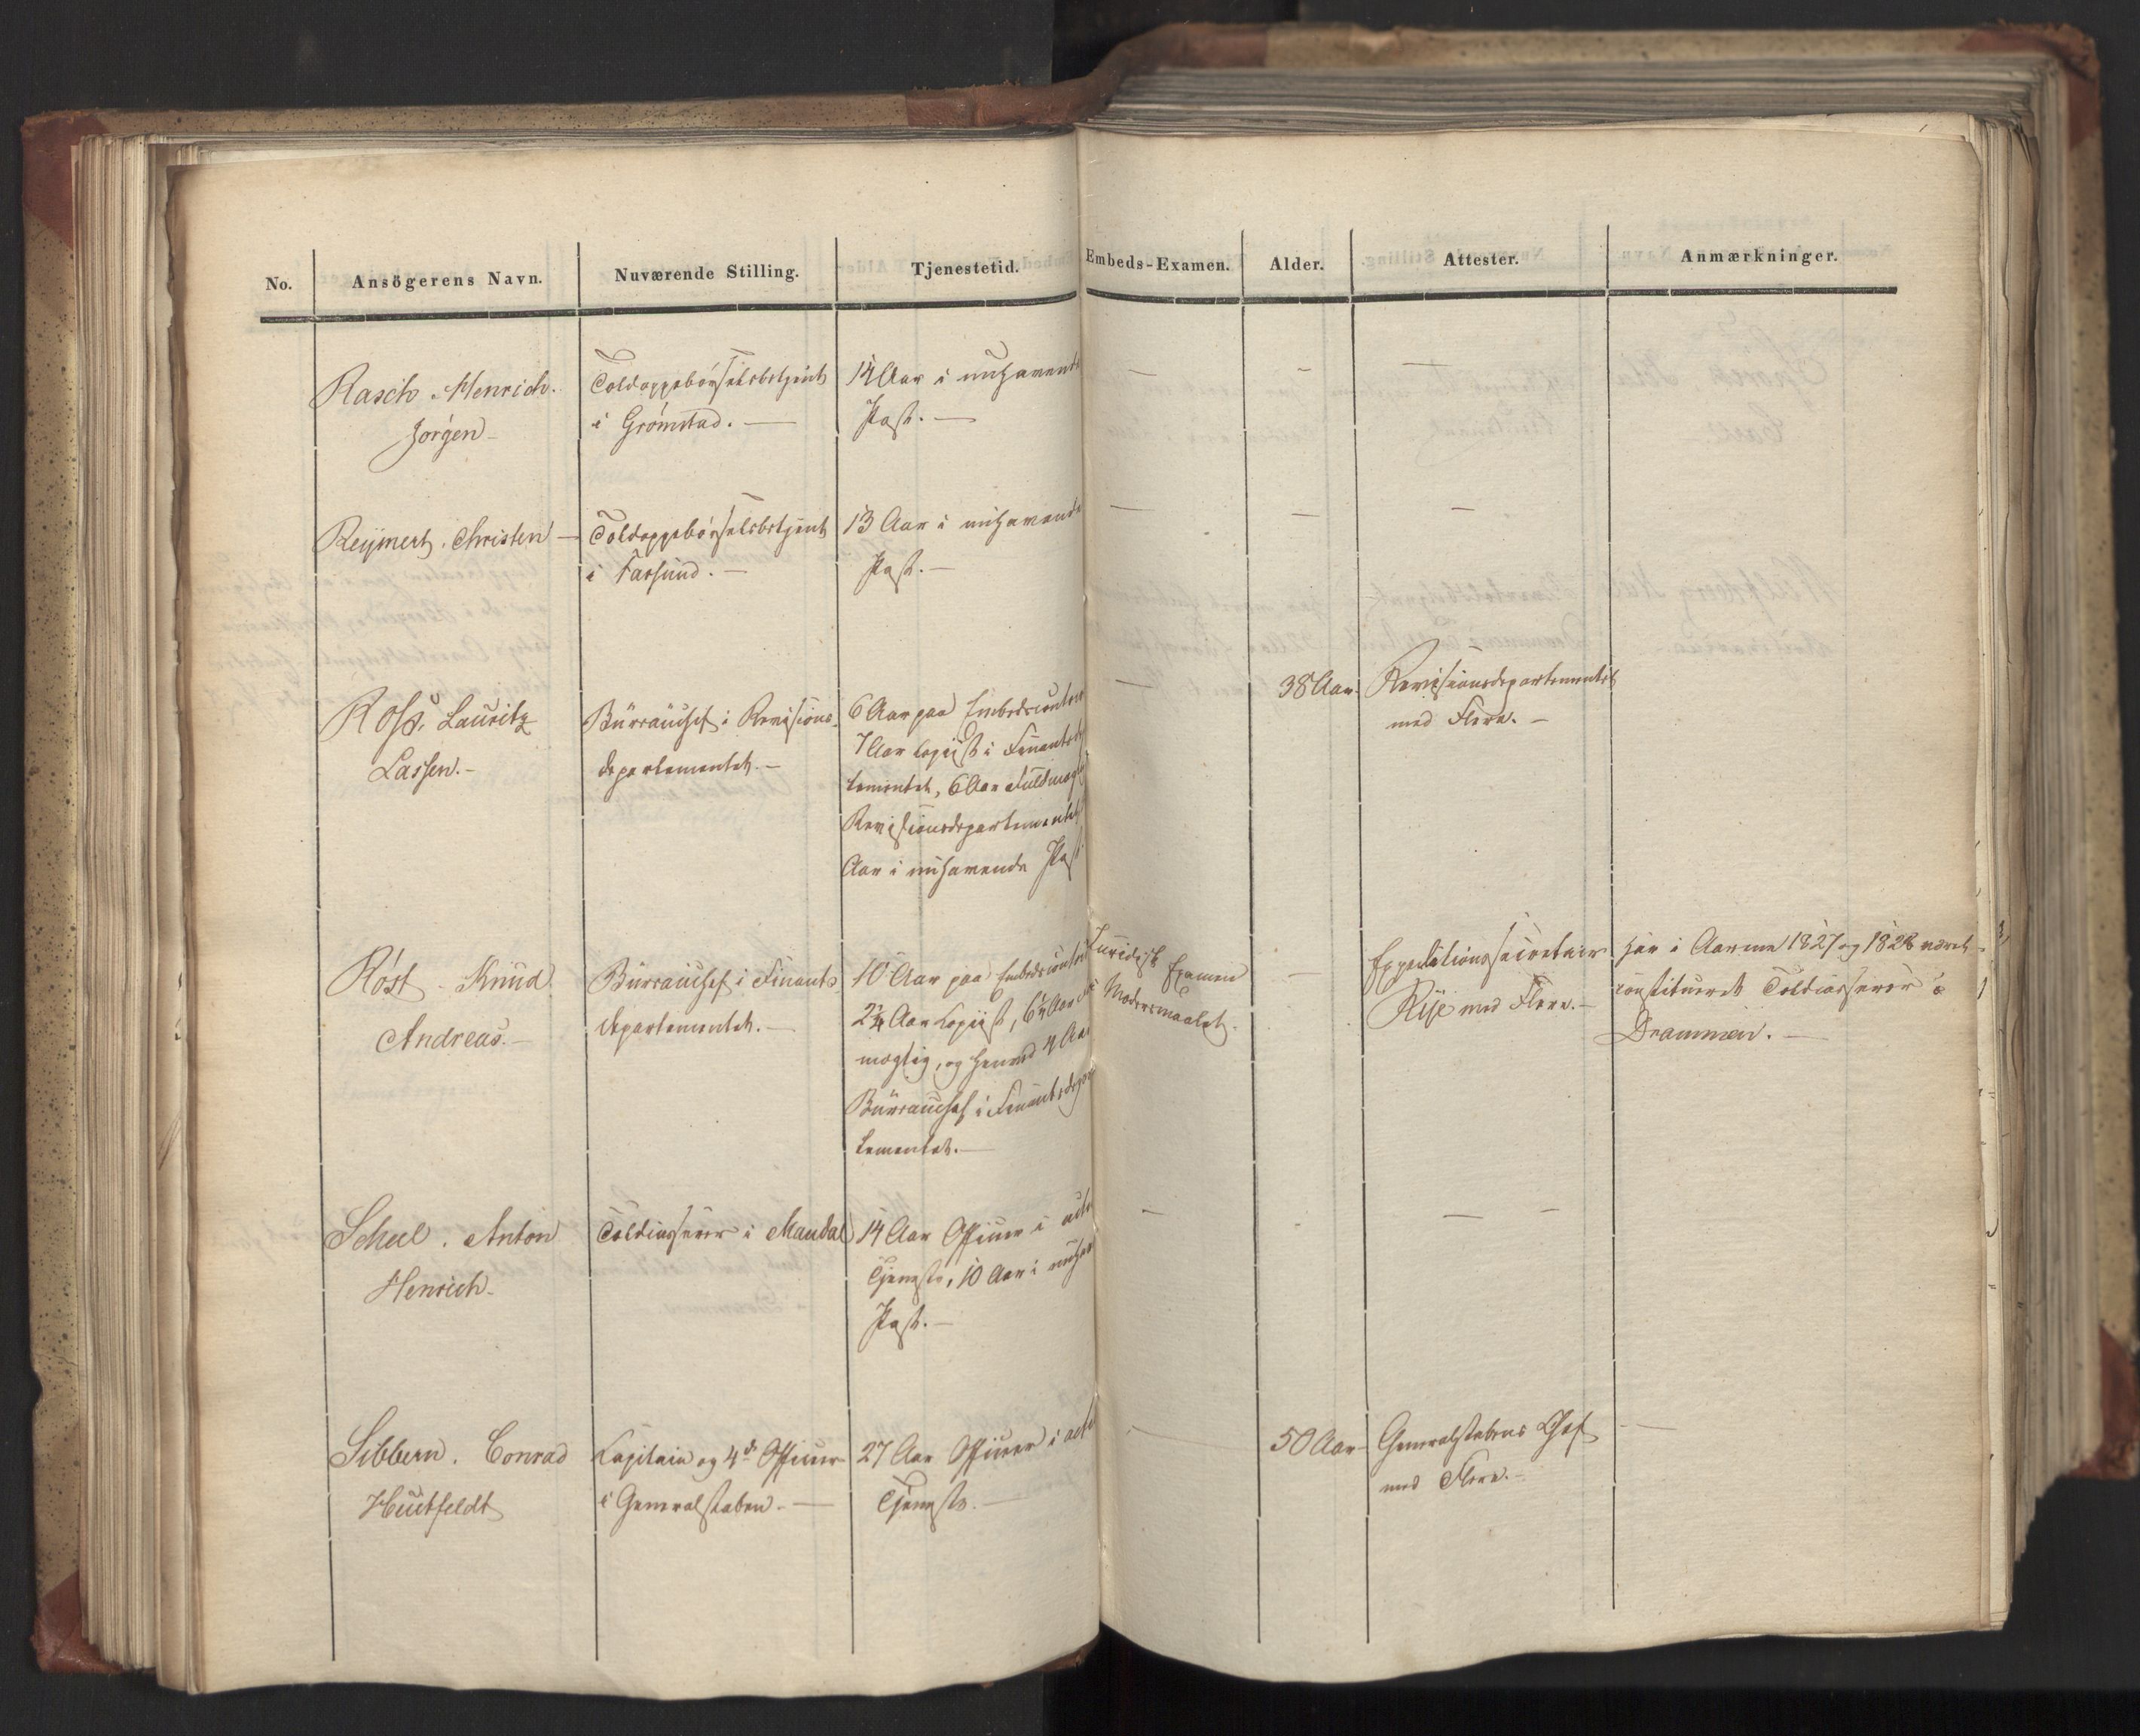 No.
Ansögerens Navn.
Nuværende Stilling.
Tjenestetid.
Embeds-Examen.
Alder.
Attester.
Anmærkninger.
Rasch. Henrich.
Jørgen -
Toldoppebørselsbetjent
i Grømstad. —
14 Aar i nuhavende
Post. —
—
–
—
Reymert. Christen —
Toldoppebørselsbetjent
i Farsund. —
13 Aar i nuhavende
Post. —
—
—
–
Ross. Lauritz
Lassen. -
Bürrauchef i Revisions-
departementet. —
6 Aar paa Embedscontoir
7 Aar Copiist i Finantsdep
tementet, 6 Aar Fuldmægtig
Revisionsdepartementet
Aar i nuhavende Post
—
38 Aar.
Revisionsdepartementet
med Flere. –
Røst. Knud
Andreas. —
Bürrauchef i Finants-
departementet. —
10 Aar paa Embedscontoir
2¼ Aar Copiist, 6¼ Aar
mægtig, og henved 4 Aar
Bürrauchef i Finantsdepar
tementet. —
Juridisk Examen
Modersmaalet.
–
Expeditionssecretair
Rije med Flere. —
har i Aarene 1827 og 1828 været
constitueret Toldcasserer i
Drammen. —
Scheel. Anton
Henrich -
Toldcasserer i Mandal
14 Aar Officier i activ
Tjeneste, 10 Aar i nuhav
Post. —
—
–
— –
Sibbern. Conrad
Huitfeldt
Capitain og 4de Officier
i Generalstaben. —
27 Aar Officier i activ
Tjeneste. —
—
50 Aar
Generalstabens Chef
med Flere. —
—